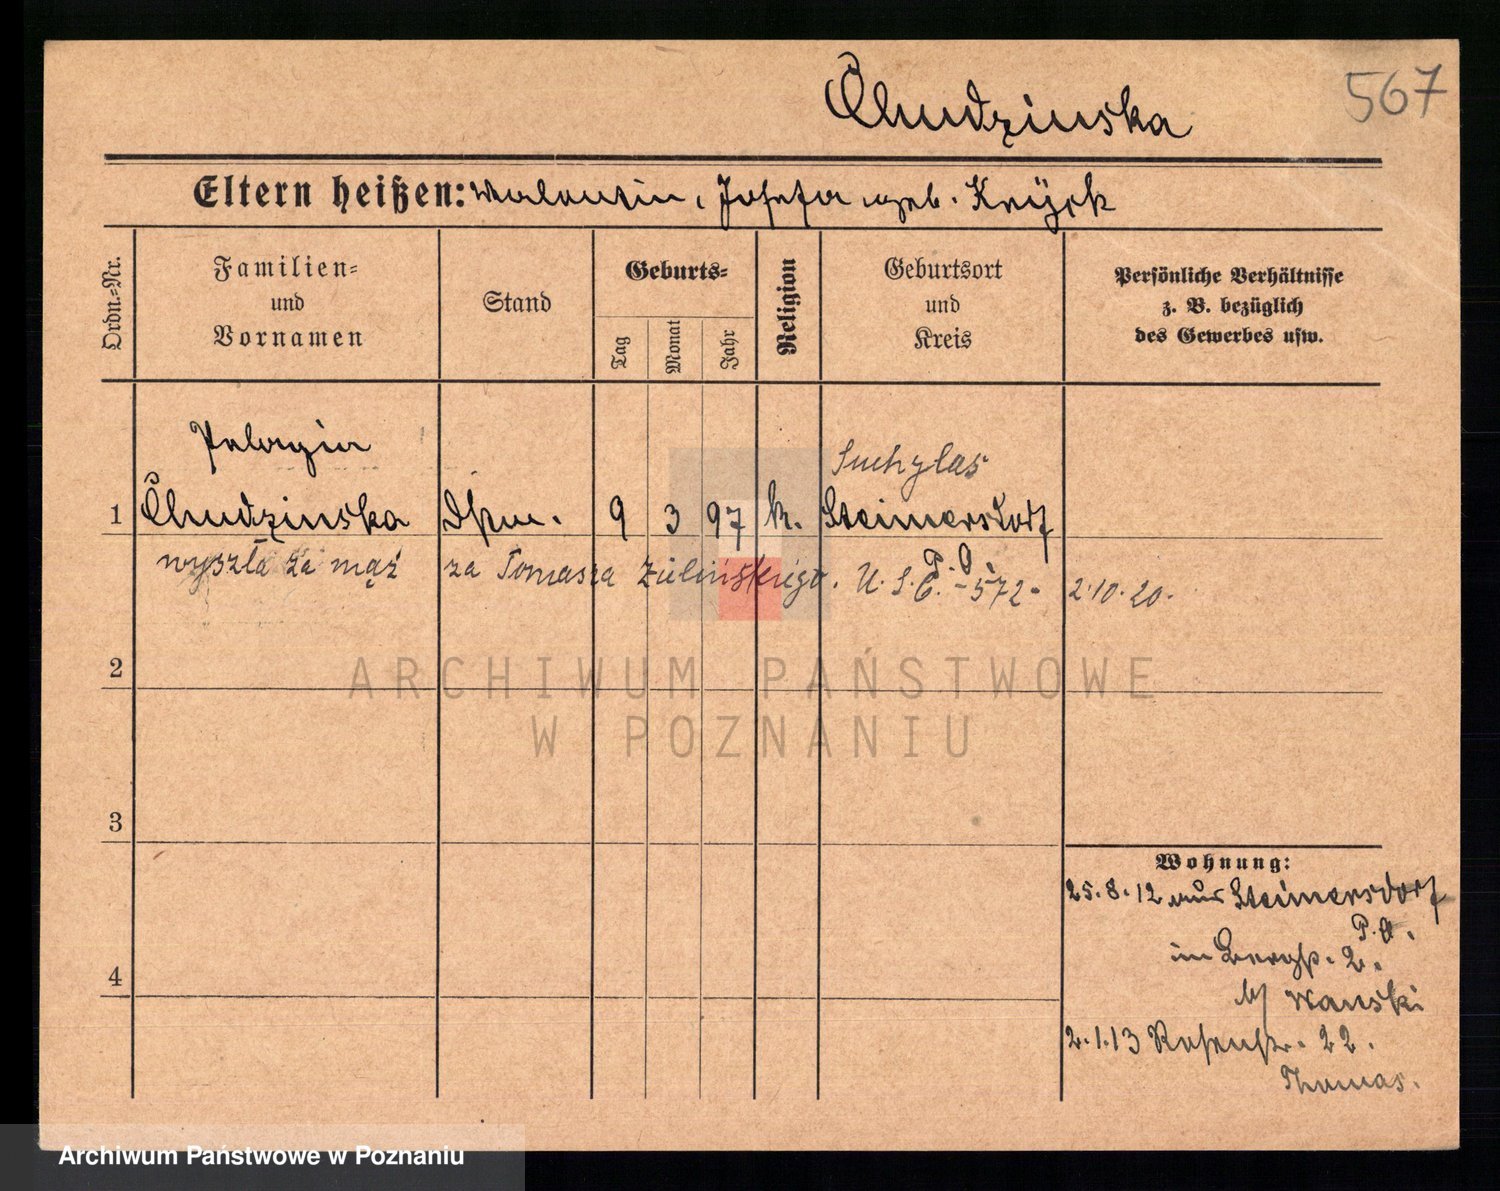 567
Chudzinska
Eltern heißen: Valentin, Josefa geb. Krÿsk
Ordn.=Nr.
Familien=
und
Vornamen
Stand
Geburts=
Tag
Monat
Jahr
Religion
Geburtsort
und
Kreis
Persönliche Verhältnisse
z. B. bezüglich
des Gewerbes usw.
Pelagia
Suchylas
1 Chudzinska 9 3 97 k. Steimersdorf
P. O.
wyszła za mąż za Tomasza Zielińskiego. U. S. C. - 572 - 2·10·20.
2
3
4
Wohnung:
25.8.12 aus Steimersdorf
P. O.
in Bergstr. 2.
b/ Wanski
2.1.13 Rosenstr. 22.
Thomas.
ARCHIWUM PAŃSTWOWE
W POZNANIU
Archiwum Państwowe w Poznaniu